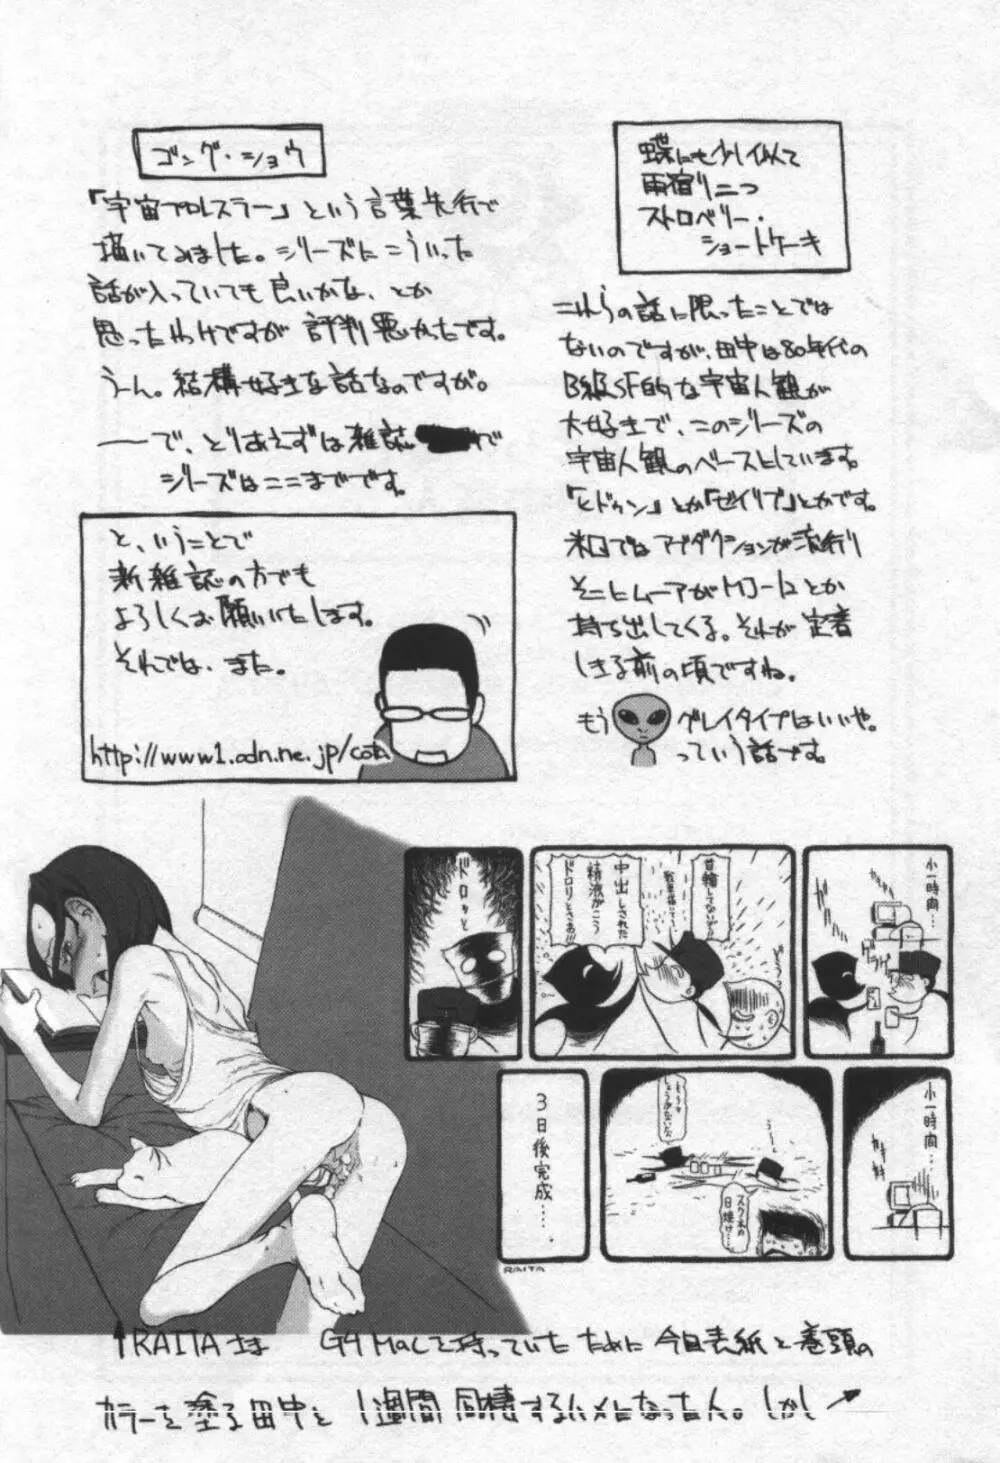 蝶にも少し似て
雨宿り二つ
ストロベリー・
ショートケーキ
これらの話に限ったことでは
ないのですが、田中は80年代の
B級SF的な宇宙人観が
大好きで、このシリーズの
宇宙人観のベースとしています。
「ヒドゥン」とか「ゼイリブ」とかです。
米国ではアブダクションが流行り
そこにムーアがトカゲとか
持ち出してくる。それが定着
しきる前の頃ですね。
もう
グレイタイプはいいや。
っていう話です。
ゴング・ショウ
「宇宙プロレスラー」という言葉先行で
描いてみました。シリーズにこういった
話が入っていても良いかな、とか
思ったわけですが評判悪かったです。
うーん。結構好きな話なのですが。
――で、とりあえずは雑誌 で
シリーズはここまでです。
と、いうことで
新雑誌の方でも
よろしくお願いいたします。
それでは、また。
http://www1.odn.ne.jp/cota
小一時間…
首輪してない
中出しされた
精液がこう
ドロリとさぁ!!
ドロッと
小一時間…
スク水の
日焼け…
3日後完成….
RAITA
↑RAITAさま G4 Macを持っていたために今回表紙と巻頭の
カラーを塗る田中と1週間同棲するハメになった人。しかし